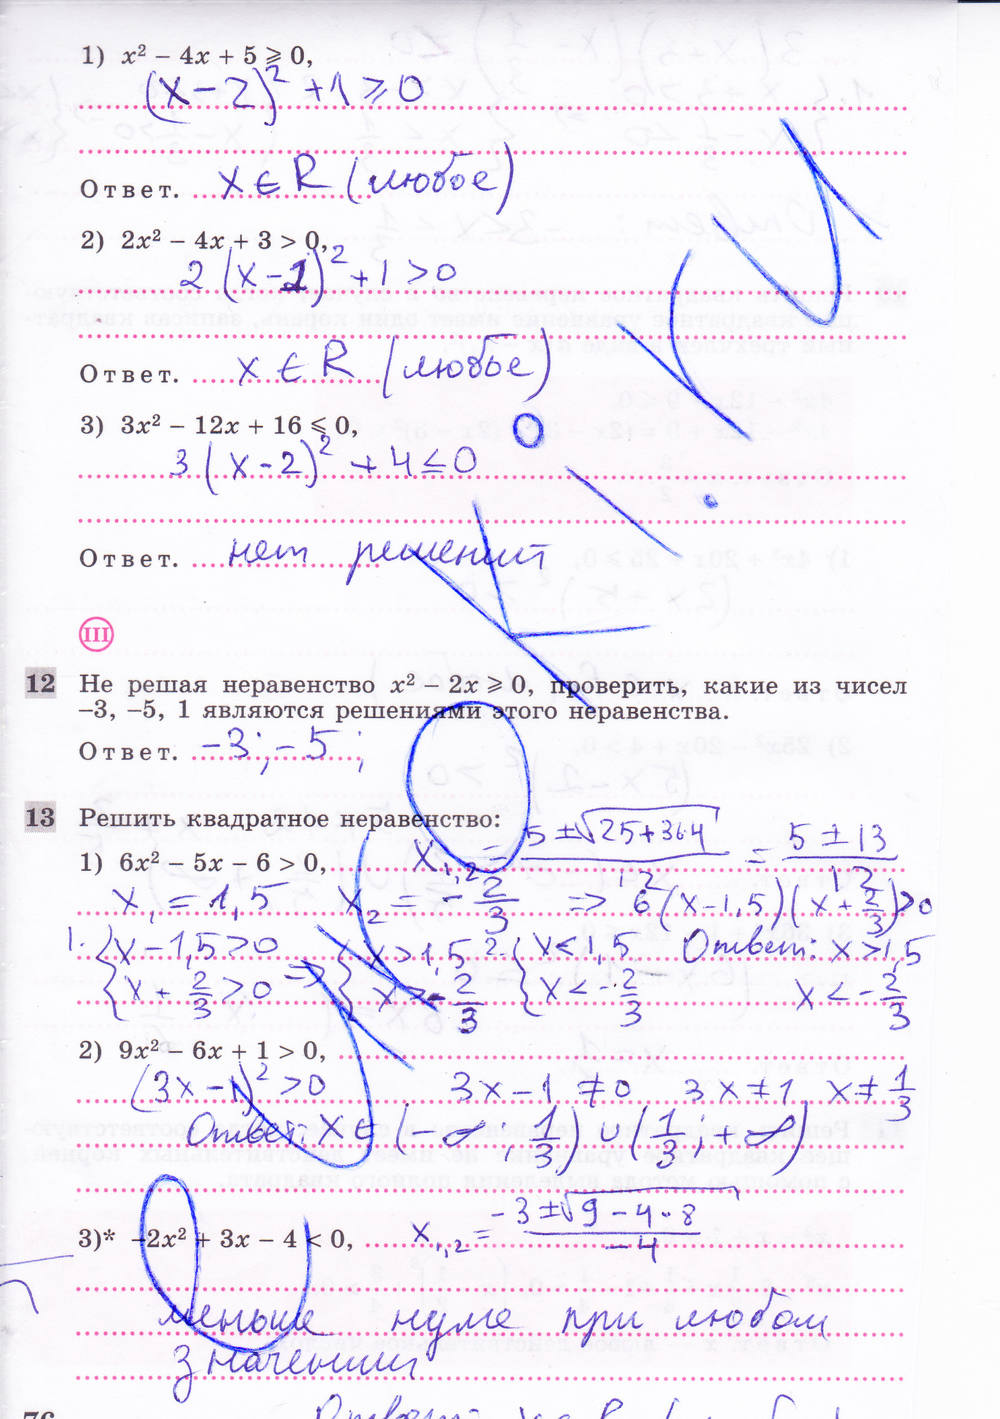 1) x² – 4x + 5 ⩾ 0,
(x – 2)² + 1 ≥ 0
Ответ. x ∈ R (любое)
2) 2x² – 4x + 3 > 0,
2 (x – 1)² + 1 > 0
Ответ. x ∈ R (любое)
3) 3x² – 12x + 16 ⩽ 0,
3 (x – 2)² + 4 ≤ 0
Ответ. нет решений
III
12 Не решая неравенство x² – 2x ⩾ 0, проверить, какие из чисел
–3, –5, 1 являются решениями этого неравенства.
Ответ. –3; –5;
13 Решить квадратное неравенство:
1) 6x² – 5x – 6 > 0, x₁,₂ = (5 ± √(25+36·4))/12 = (5 ± 13)/12
x₁ = 1,5 x₂ = – 2/3 => 6(x – 1,5)(x + 2/3) > 0
1. { x – 1,5 > 0 => { x > 1,5 2. { x < 1,5 Ответ: x > 1,5
{ x + 2/3 > 0 { x > – 2/3 { x < – 2/3 x < – 2/3
2) 9x² – 6x + 1 > 0,
(3x – 1)² > 0 3x – 1 ≠ 0 3x ≠ 1 x ≠ 1/3
Ответ: x ∈ (– ∞ 1/3) ∪ (1/3; + ∞)
3)* –2x² + 3x – 4 < 0, x₁,₂ = (–3 ± √(9 – 4·8))/–4
меньше нуля при любом
значении
76